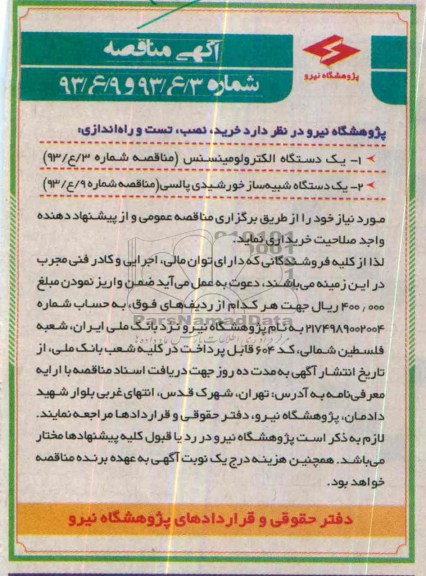 آگهی مناقصه
شماره ۹۳/ع/۳ و ۹۳/ع/۹
پژوهشگاه نیرو
پژوهشگاه نیرو در نظر دارد خرید، نصب، تست و راه‌اندازی:
۱- یک دستگاه الکترولومینسنس (مناقصه شماره ۹۳/ع/۳)
۲- یک دستگاه شبیه‌ساز خورشیدی پالسی (مناقصه شماره ۹۳/ع/۹)
مورد نیاز خود را از طریق برگزاری مناقصه عمومی و از پیشنهاد دهنده
واجد صلاحیت خریداری نماید.
لذا از کلیه فروشندگانی که دارای توان مالی، اجرایی و کادر فنی مجرب
در این زمینه می‌باشند، دعوت به عمل می‌آید ضمن واریز نمودن مبلغ
۴۰۰٫۰۰۰ ریال جهت هر کدام از ردیف‌های فوق، به حساب شماره
۲۱۷۴۹۸۹۰۰۲۰۰۴ به نام پژوهشگاه نیرو نزد بانک ملی ایران، شعبه
ParsNamadData
فلسطین شمالی، کد ۶۰۴ قابل پرداخت در کلیه شعب بانک ملی، از
تاریخ انتشار آگهی به مدت ده روز جهت دریافت اسناد مناقصه با ارایه
معرفی‌نامه به آدرس: تهران، شهرک قدس، انتهای غربی بلوار شهید
دادمان، پژوهشگاه نیرو، دفتر حقوقی و قراردادها مراجعه نمایند.
لازم به ذکر است پژوهشگاه نیرو در رد یا قبول کلیه پیشنهادها مختار
می‌باشد. همچنین هزینه درج یک نوبت آگهی به عهده برنده مناقصه
خواهد بود.
دفتر حقوقی و قراردادهای پژوهشگاه نیرو